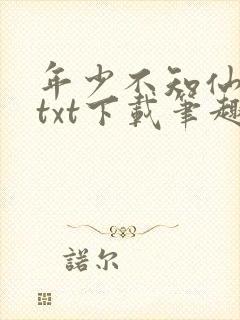 年少不知仙
txt下載筆趣
諾尔